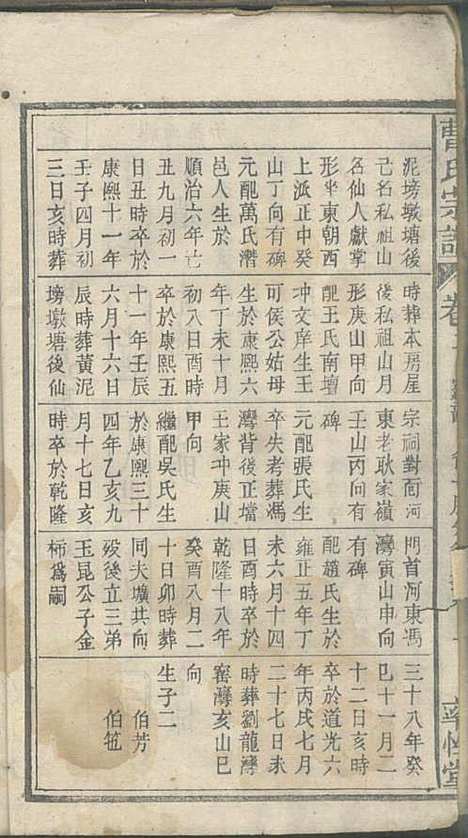 曹氏宗譜
卷
率性堂
泥塝墩塘後
己名私祖山
名仙人獻掌
形坐東朝西
上派正中癸
山丁向有碑
元配萬氏濳
邑人生於
順治六年亡
丑九月初一
日丑時卒於
康熙十一年
壬子四月初
三日亥時葬
時葬本房屋
後私祖山月
形庚山甲向
配王氏南壇
冲文庠生王
可俟公姑母
生於康熙六
年丁未十月
初八日酉時
卒於康熙五
十一年壬辰
六月十六日
辰時葬黃泥
塝墩塘後仙
宗祠對面河
東老耿家嶺
壬山丙向有
碑
元配張氏生
卒失老葬馮
灣背後正壋
王家冲庚山
甲向
繼配吳氏生
於康熙三十
四年乙亥九
月十七日亥
時卒於乾隆
門首河東馮
灣寅山申向
有碑
配趙氏生於
雍正五年丁
未六月十四
日酉時卒於
乾隆十八年
癸酉八月二
十日卯時葬
同夫壙共向
歿後立三弟
玉昆公子金
柿為嗣
三十八年癸
巳十一月二
十二日亥時
卒於道光六
年丙戌七月
二十七日未
時葬劉龍灣
窑灣亥山巳
向
生子二
伯芳
伯